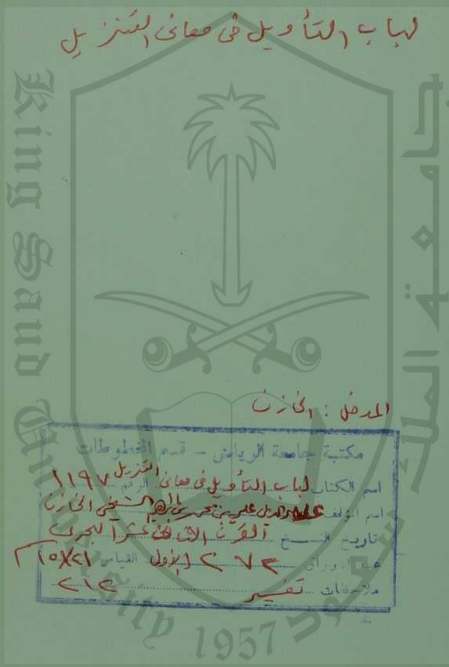 لباب التأويل فى معانى التنزيل
King Saud University
جامعة الملك سعود
المدخل : الخازن
مكتبة جامعة الرياض - قسم المخطوطات
اسم الكتاب لباب التأويل فى معانى التنزيل الرقم ١١٩٧
اسم المؤلف على بن محمد بن ابراهيم الشيحى الخازن
تاريخ النسخ القرن الثانى عشر الهجرى
عدد الأوراق ٢٧٢ الأول القياس ٢١×١٥
ملاحظات تفسير ٢١٢
1957